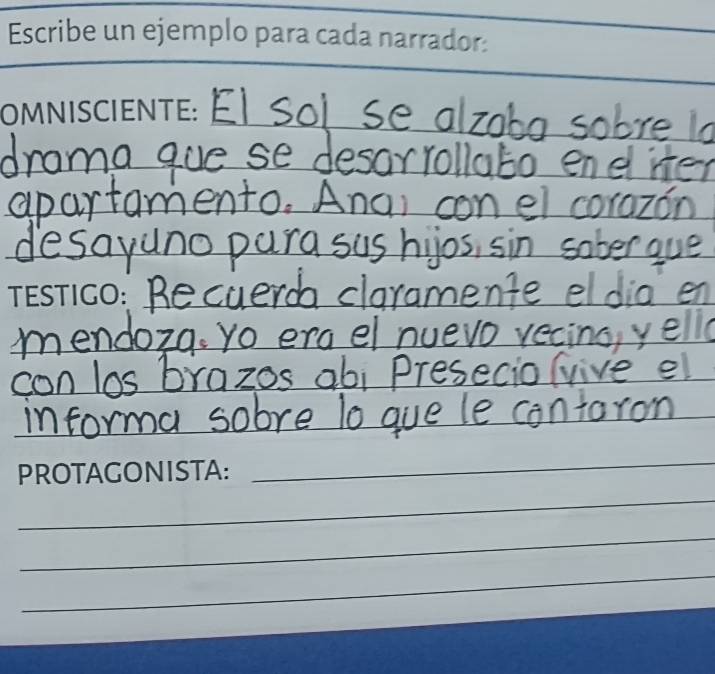 Escribe un ejemplo para cada narrador:
OMNISCIENTE: El sol se alzaba sobre la
drama que se desarrollabo en el
apartamento. Ana, con el corazón
desayuno para sus hijos, sin saber que
TESTIGO: Recuerda claramente el dia en
mendoza. Yo era el nuevo vecino, y ella
con los brazos abi Presecio (vive el
informa sobre lo que le contaron
PROTAGONISTA: